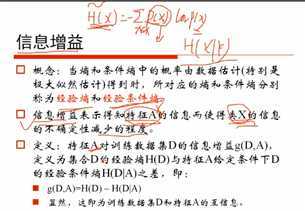 H̃(X)=-∑p(x)ln p(x)
x∈X
H(X|Y)
信息增益
概念：当熵和条件熵中的概率由数据估计(特别是
极大似然估计)得到时，所对应的熵和条件熵分别
称为经验熵和经验条件熵。
信息增益表示得知特征A的信息而使得类X的信息
的不确定性减少的程度。
定义：特征A对训练数据集D的信息增益g(D,A)，
定义为集合D的经验熵H(D)与特征A给定条件下D
的经验条件熵H(D|A)之差，即：
g(D,A)=H(D) – H(D|A)
显然，这即为训练数据集D和特征A的互信息。